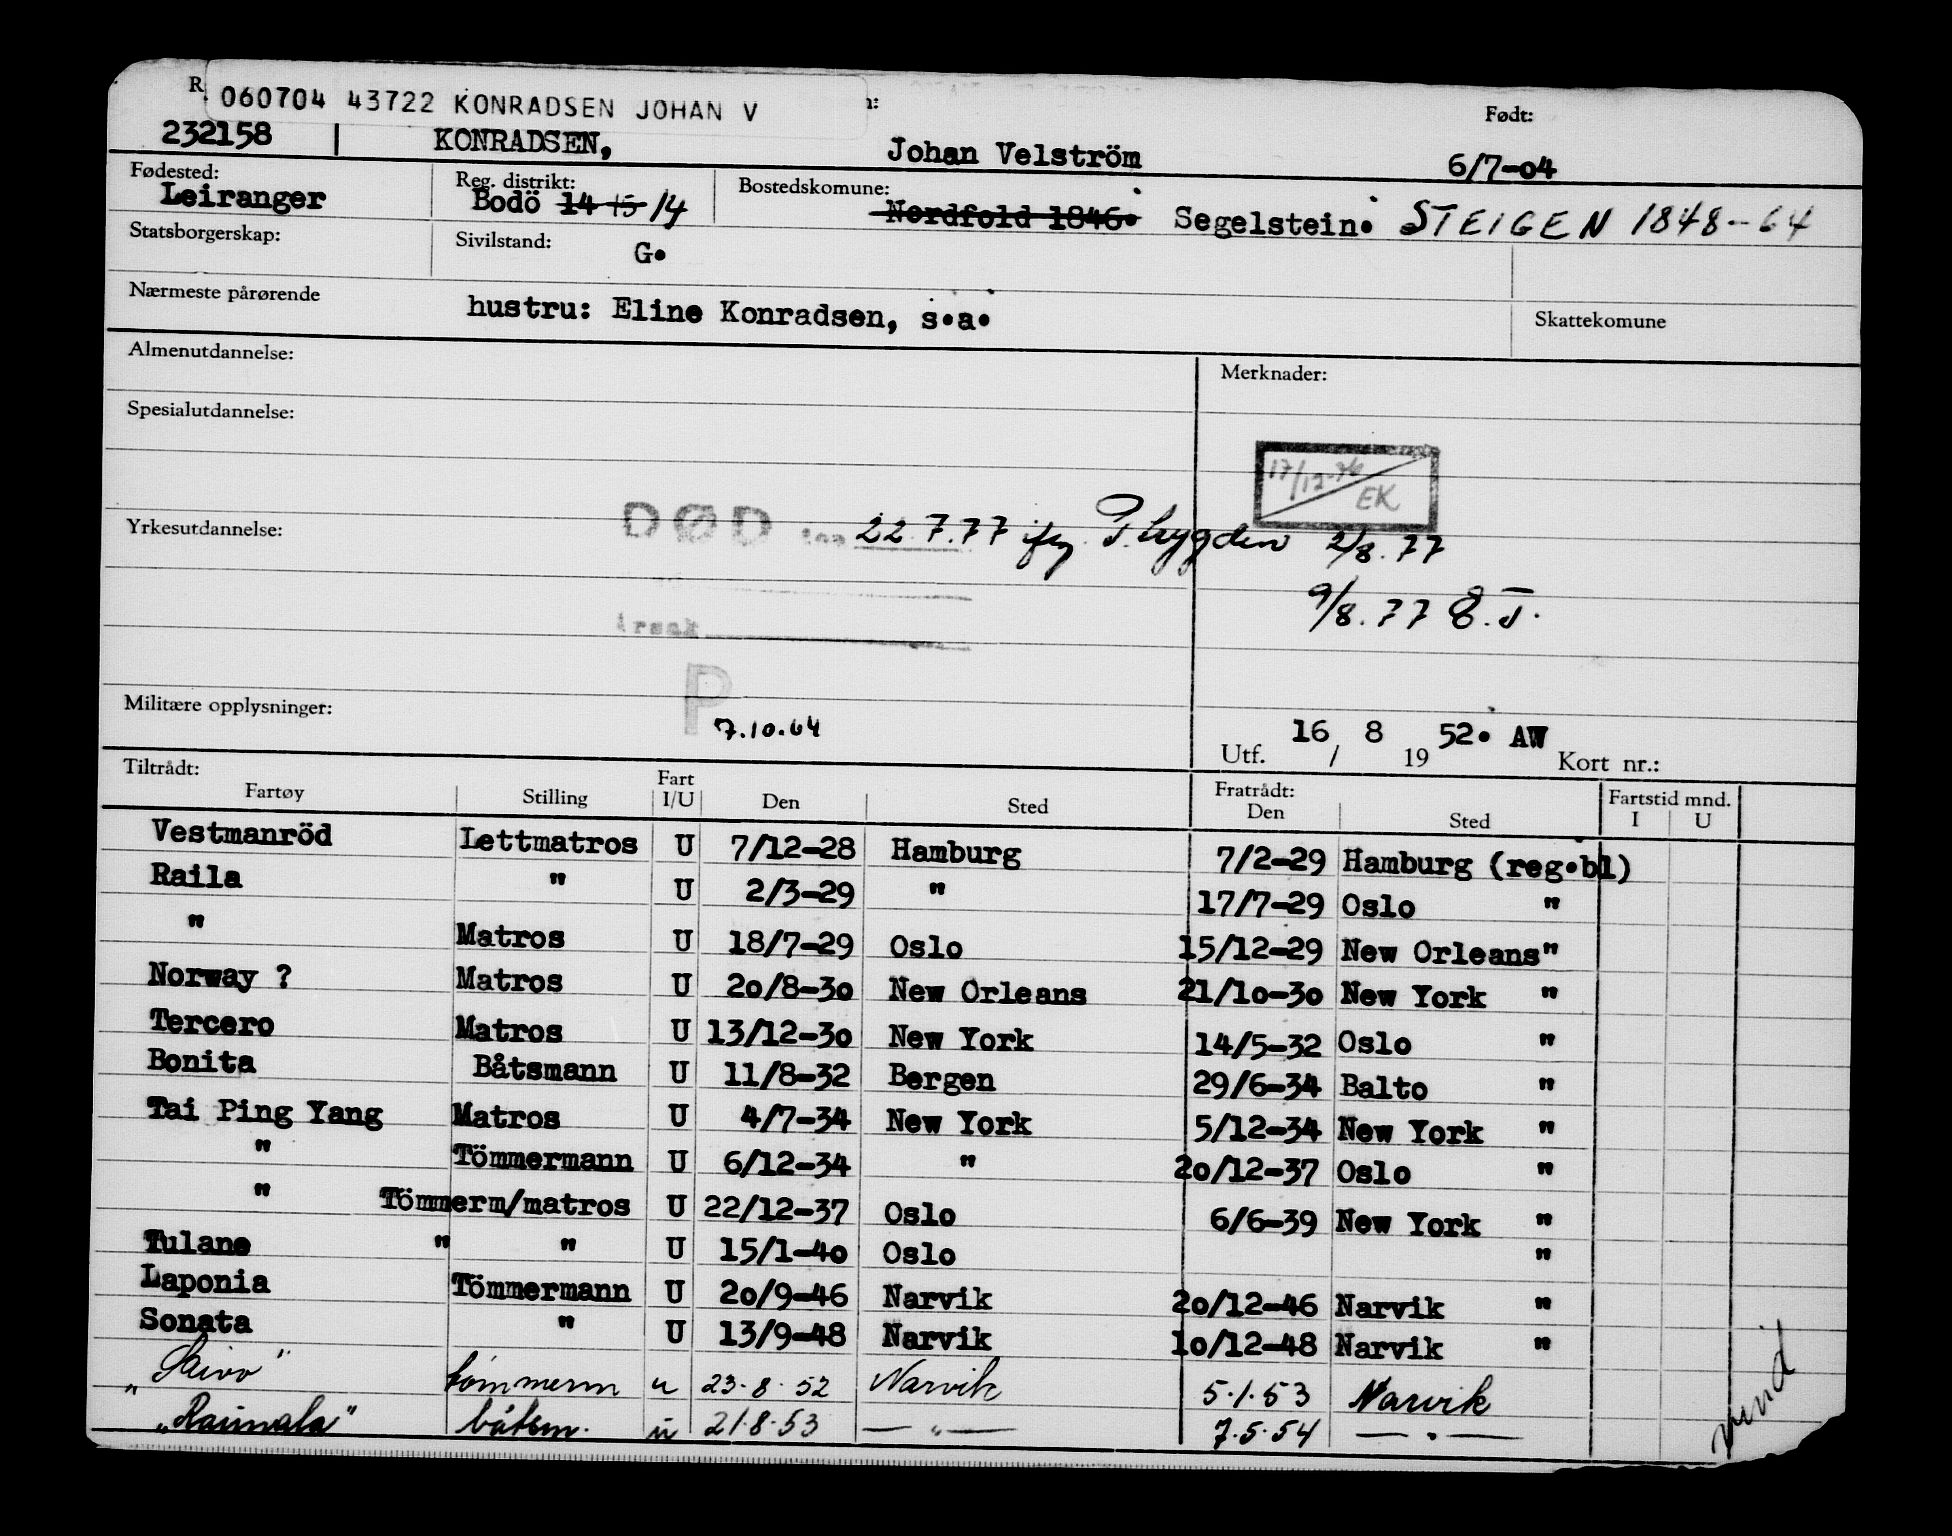 R. 060704 43722 KONRADSEN JOHAN V n: Født:
232158 KONRADSEN, Johan Velström 6/7-04
Fødested: Reg. distrikt: Bostedskomune:
Leiranger Bodö 14 15 14 Nordfold 1846. Segelstein. STEIGEN 1848-64
Statsborgerskap: Sivilstand: G.
Nærmeste pårørende hustru: Eline Konradsen, s.a. Skattekomune
Almenutdannelse: Merknader:
Spesialutdannelse:
17/12-76 EK
Yrkesutdannelse: DØD 22.7.77 ifg. P. trygden 2/8.77
9/8.77
årsak
P
Militære opplysninger: 7.10.64
Utf. 16 / 8 19 52. AW Kort nr.:
Tiltrådt: Fart Fratrådt: Fartstid mnd.
Fartøy Stilling I/U Den Sted Den Sted I U
Vestmanröd Lettmatros U 7/12-28 Hamburg 7/2-29 Hamburg (reg.bl)
Raila " U 2/3-29 " 17/7-29 Oslo "
" Matros U 18/7-29 Oslo 15/12-29 New Orleans"
Norway ? Matros U 20/8-30 New Orleans 21/10-30 New York "
Tercero Matros U 13/12-30 New York 14/5-32 Oslo "
Bonita Båtsmann U 11/8-32 Bergen 29/6-34 Balto "
Tai Ping Yang Matros U 4/7-34 New York 5/12-34 New York "
" Tömmermann U 6/12-34 " 20/12-37 Oslo "
" Tömmerm/matros U 22/12-37 Oslo 6/6-39 New York "
Tulane " " U 15/1-40 Oslo "
Laponia Tömmermann U 20/9-46 Narvik 20/12-46 Narvik "
Sonata " U 13/9-48 Narvik 10/12-48 Narvik "
"Saivo" tömmerm u 23.8.52 Narvik 5.1.53 Narvik
"Raunala" båtsm. u 21.8.53 — " — 7.5.54 — " —